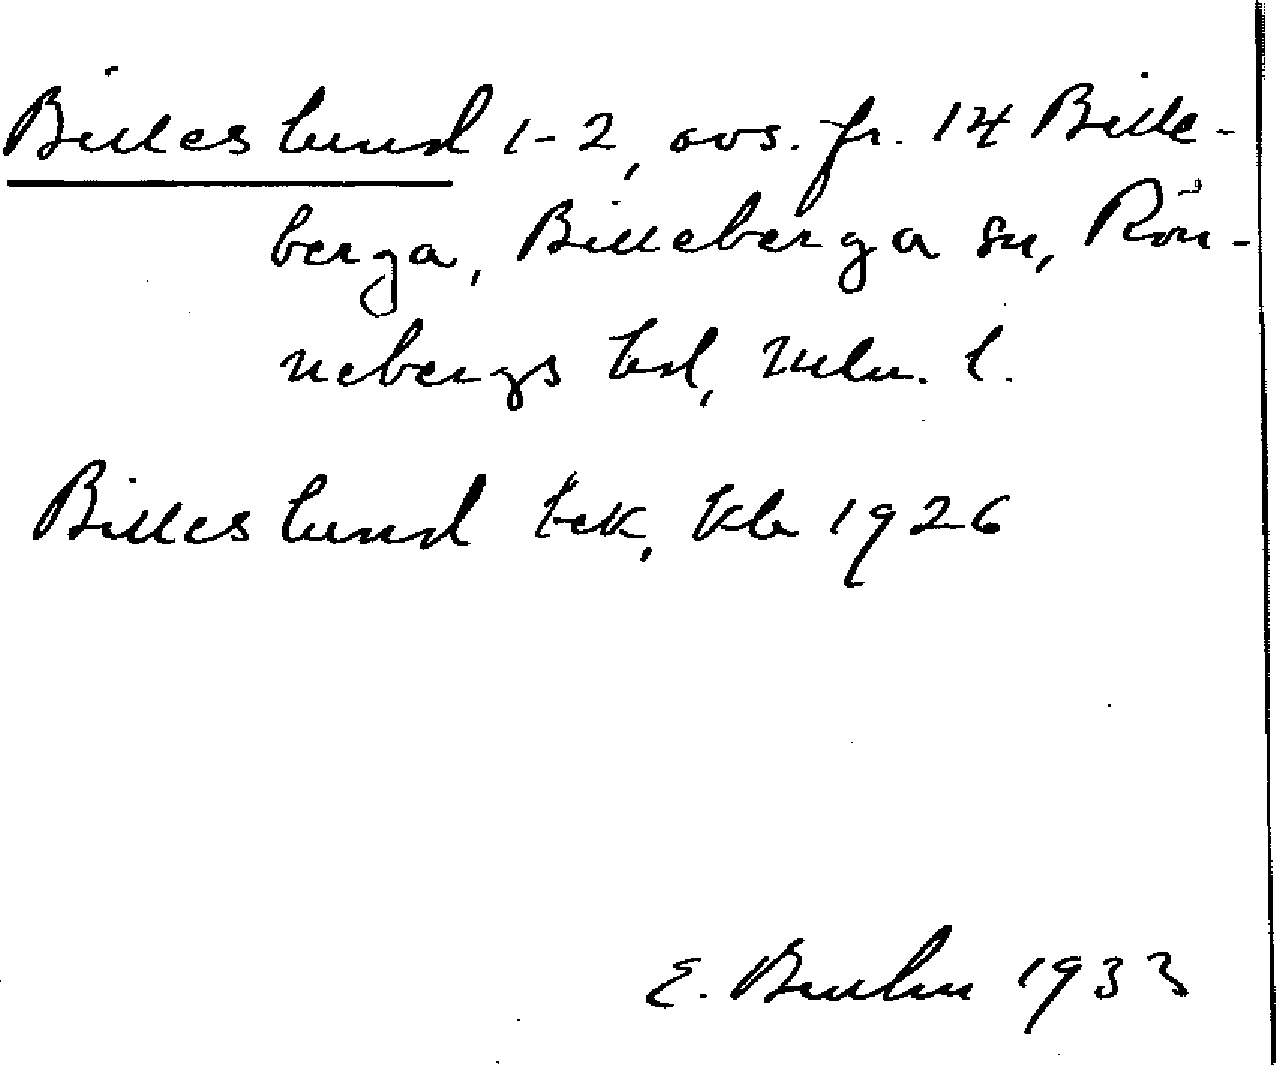 Billeslund 1-2, avs. fr. 14 Bille-
berga, Billeberga sn, Rön-
nebergs hd, Mlm. l.
Billeslund tck, kb 1926
E. 1933